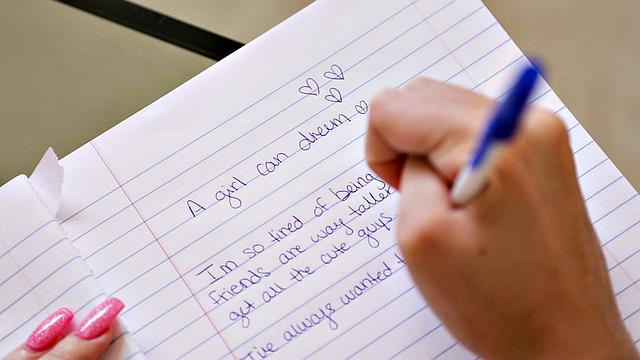 A girl can dream
I'm so tired of being
friends are way taller
get all the cute guys
I've always wanted